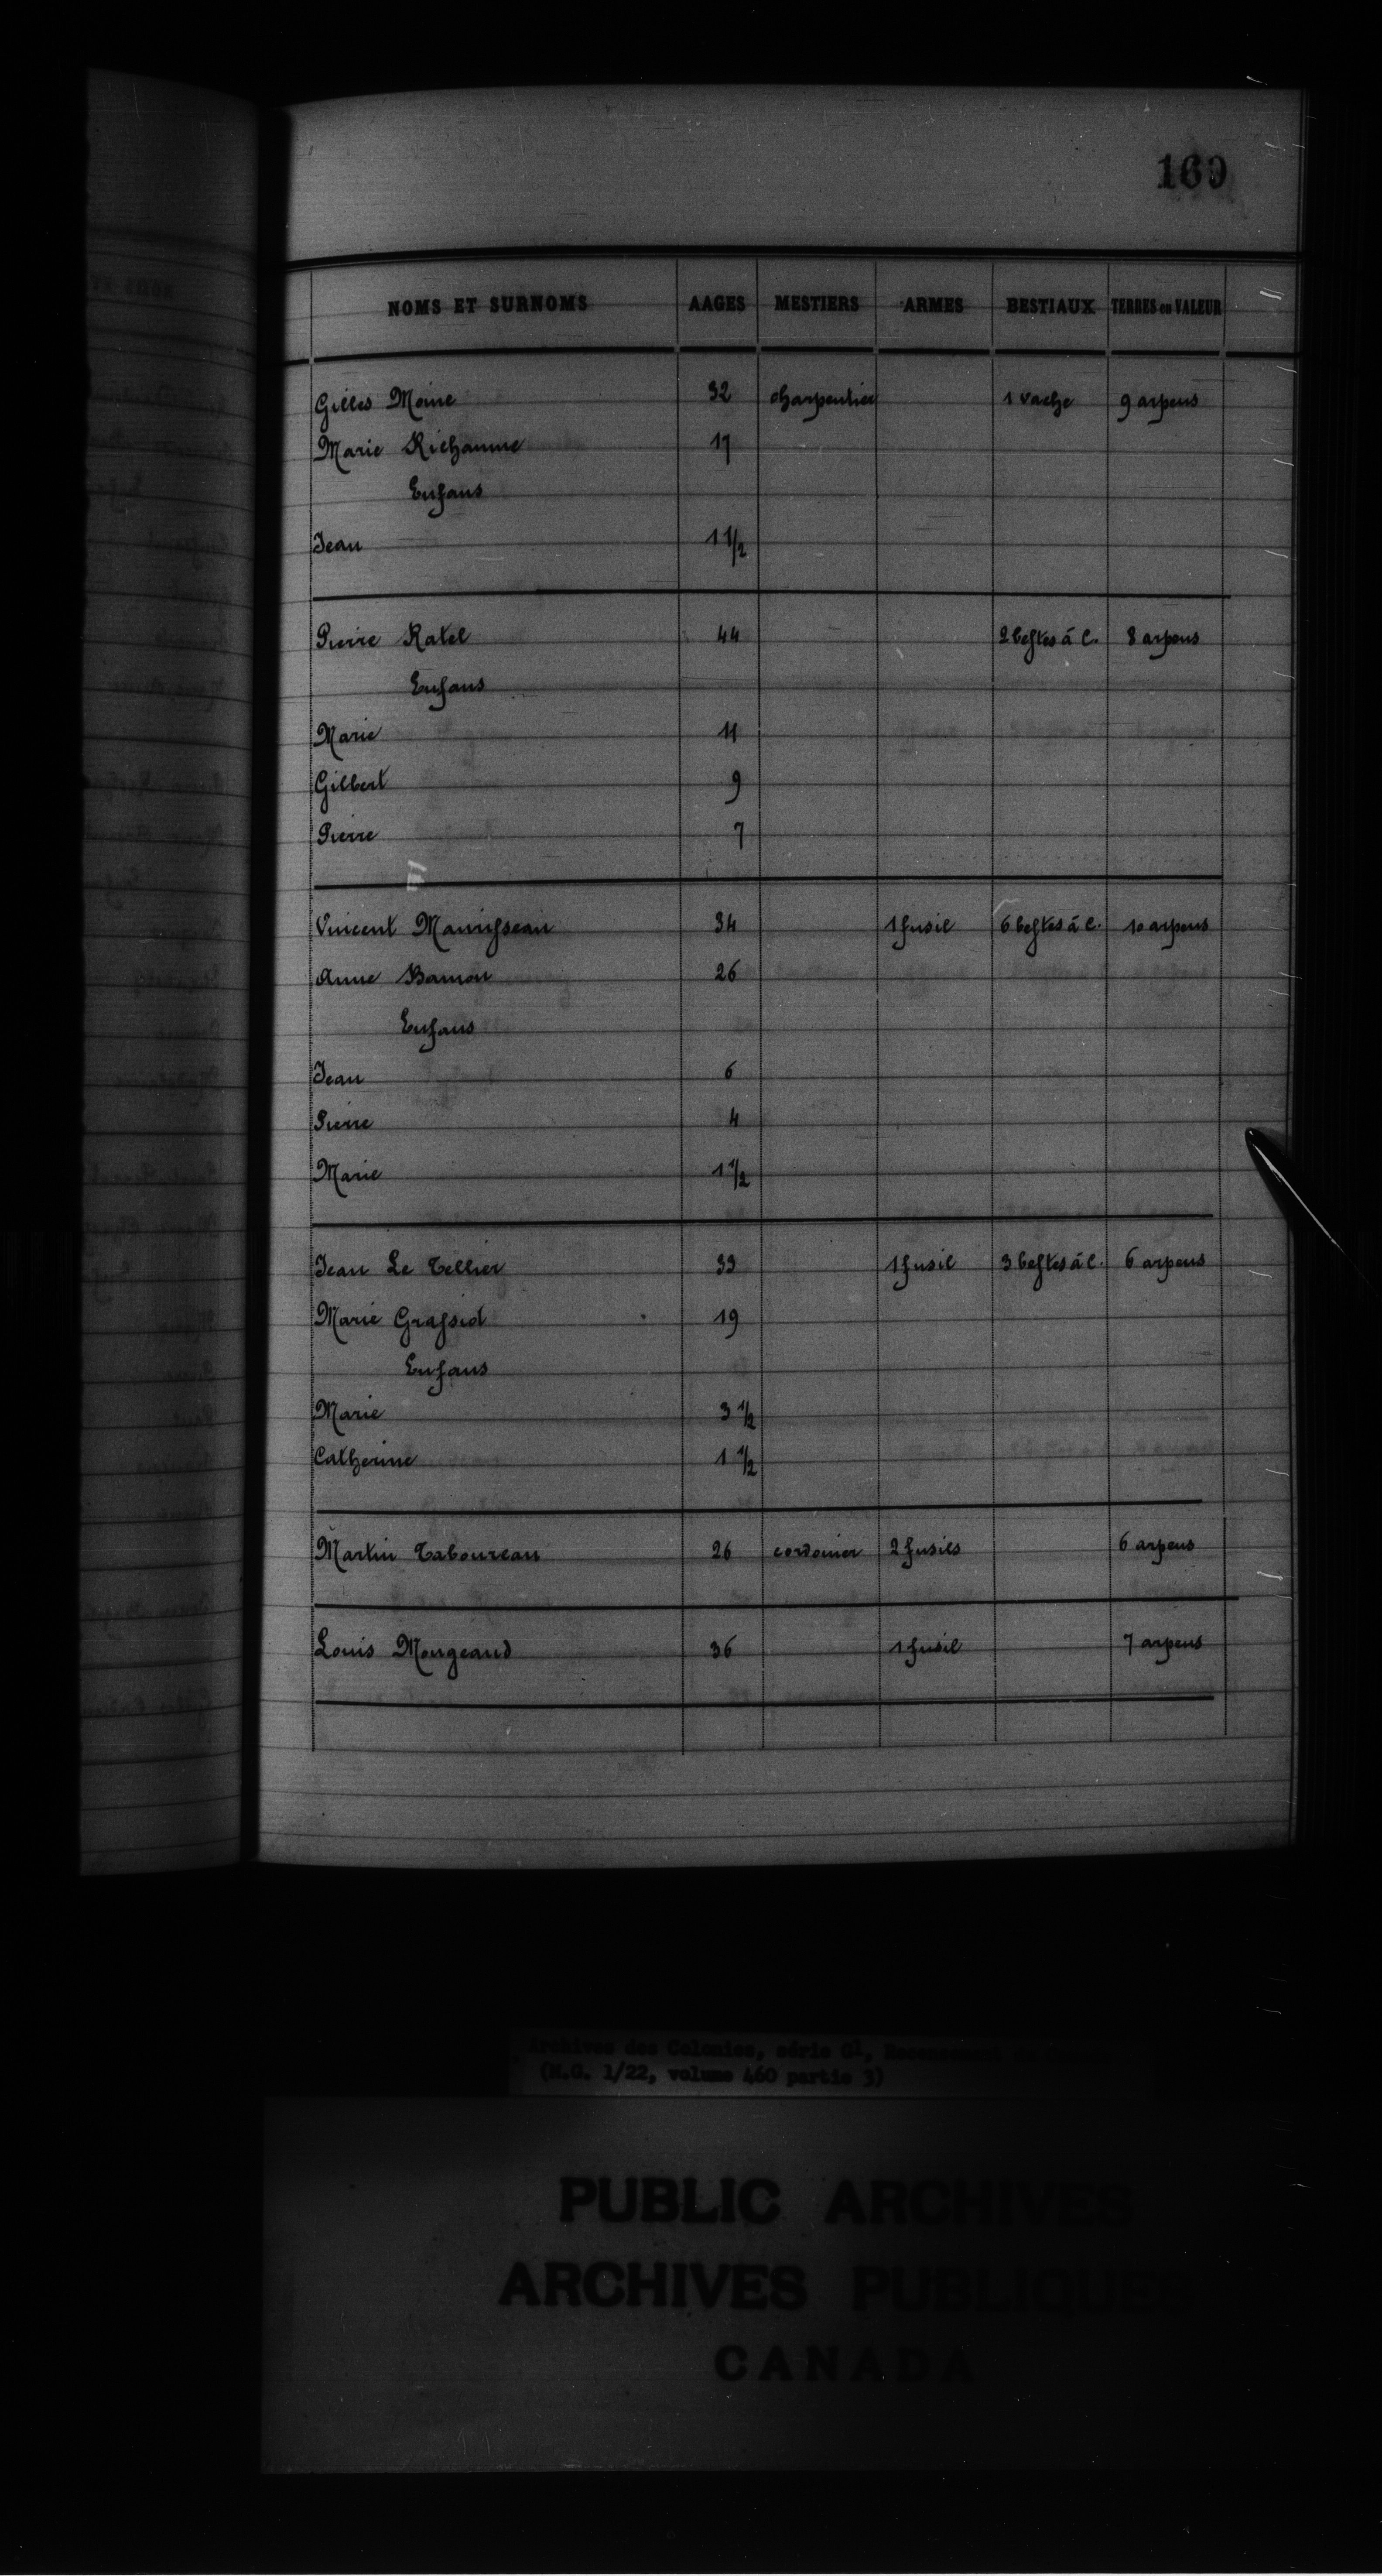 169
NOMS ET SURNOMS AAGES MESTIERS ARMES BESTIAUX TERRES en VALEUR
Gilles Moine 32 charpentier 1 vache 9 arpens
Marie Richaume 17
Enfans
Jean 1 1/2
Pierre Ratel 44 2 bestes à C. 8 arpens
Enfans
Marie 11
Gilbert 9
Pierre 7
Vincent Maurisseau 34 1 fusil 6 bestes à C. 10 arpens
Anne Bamon 26
Enfans
Jean 6
Pierre 4
Marie 1 1/2
Jean Le Tellier 33 1 fusil 3 bestes à C. 6 arpens
Marie Grassiot 19
Enfans
Marie 3 1/2
Catherine 1 1/2
Martin Taboureau 26 cordonier 2 fusils 6 arpens
Louis Mongeaud 36 1 fusil 7 arpens
Archives des Colonies, série G1, Recensement
(M.G. 1/22, volume 460 partie 3)
PUBLIC ARCHIVES
ARCHIVES PUBLIQUES
CANADA